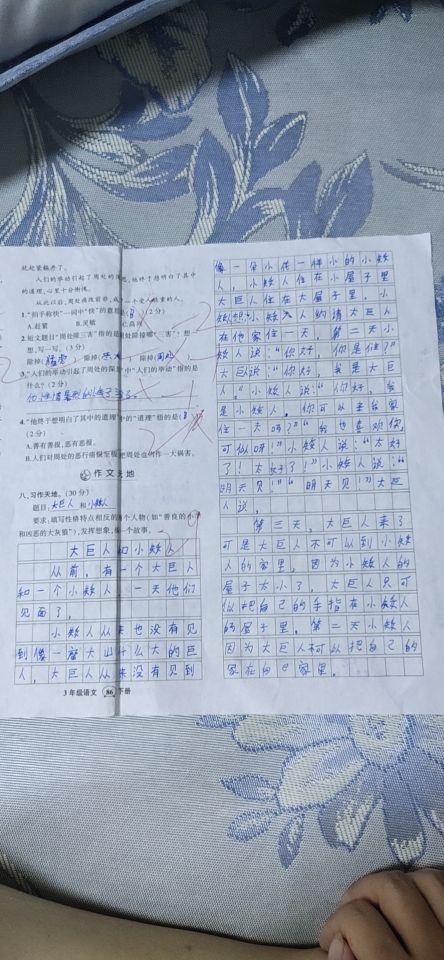 就起紧躲开了。
人们的举动引起了周处的深思,他终于想明白了其中
的道理,心里十分惭愧。
从此以后,周处痛改前非,成为一个受人尊重的人。
1."拍手称快"一词中"快"的意思是(B)(2分)
A.赶紧 B.灵敏 C.高兴
2.短文题目"周处除三害"指的是周处除掉哪"三害"?想一
想,写一写。(3分)
除掉(猛虎) 除掉( ) 除掉(周处)
3."人们的举动引起了周处的深思"中"人们的举动"指的是
什么?(2分)
4."他终于想明白了其中的道理"中的"道理"指的是( )
(2分)
A.善有善报,恶有恶报。
B.人们对周处的恶行痛恨至极,把周处也当作一大祸害。
作文天地
八、习作天地。(30分)
题目:大巨人 和小矮人
要求:填写性格特点相反的两个人物(如"善良的小
和凶恶的大灰狼),发挥想象,编一个故事。
大巨人和小矮人
从前,有一个大巨人
和一个小矮人,一天他们
见面了,
小矮人从来也没有见
到像一座大山什么大的巨
人,大巨人从来没有见到
3年级语文 86 下册
像一朵小花一样小的小矮
人,小矮人住在小屋子里
大巨人住在大屋子里,小
矮人约请大巨人
在他家住一天,第二天小
矮人说:"你好,你是谁?"
大巨人说:"你好,我是大巨
人。"小矮人说:"你好,我
是小矮人。你可以去我家
住一天吗?""我也喜欢你,
可似呀!"小矮人说:"太好
了!太好了!"小矮人说:"
明天见!""明天见!"大巨
人说,
第三天,大巨人来了
可是大巨人不可以到小矮
人的家里,因为小矮人的
屋子太小了,大巨人只可
似把自己的手指在小矮人
的屋子里。第二天小矮人
因为大巨人不可以把自己的
家在自己家里。